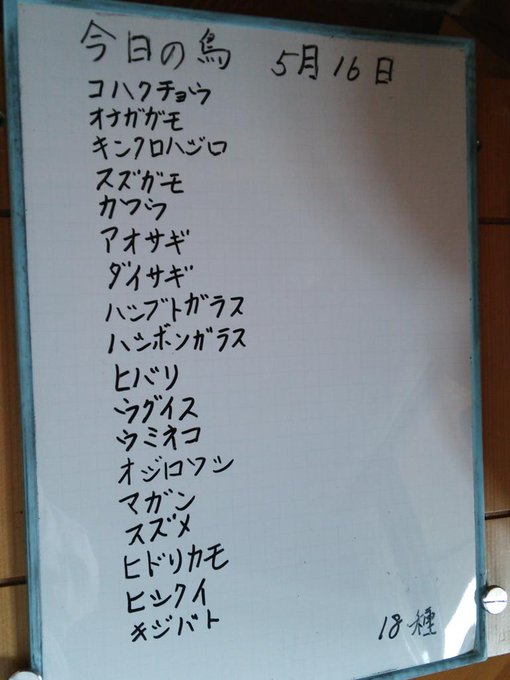 今日の鳥 5月16日
コハクチョウ
オナガガモ
キンクロハジロ
スズガモ
カワウ
アオサギ
ダイサギ
ハシブトガラス
ハシボソガラス
ヒバリ
ウグイス
ウミネコ
オジロワシ
マガン
スズメ
ヒドリカモ
ヒシクイ
キジバト
18種